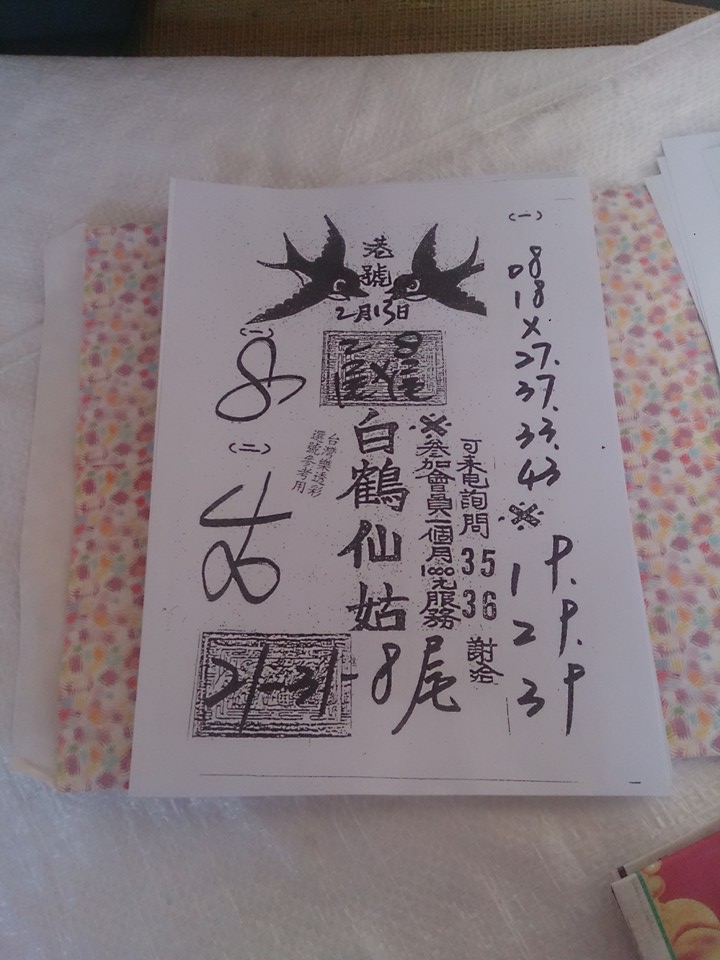 港
號
2月13日
(一)
8
(二)
台灣樂透彩
選號參考用
白鶴仙姑
※參加會員一個月1000元服務
可來电詢問 35 36 謝洽
21-31-8尾
(一)
08
18
×
27.
37.
33.
43
※
1
2
3